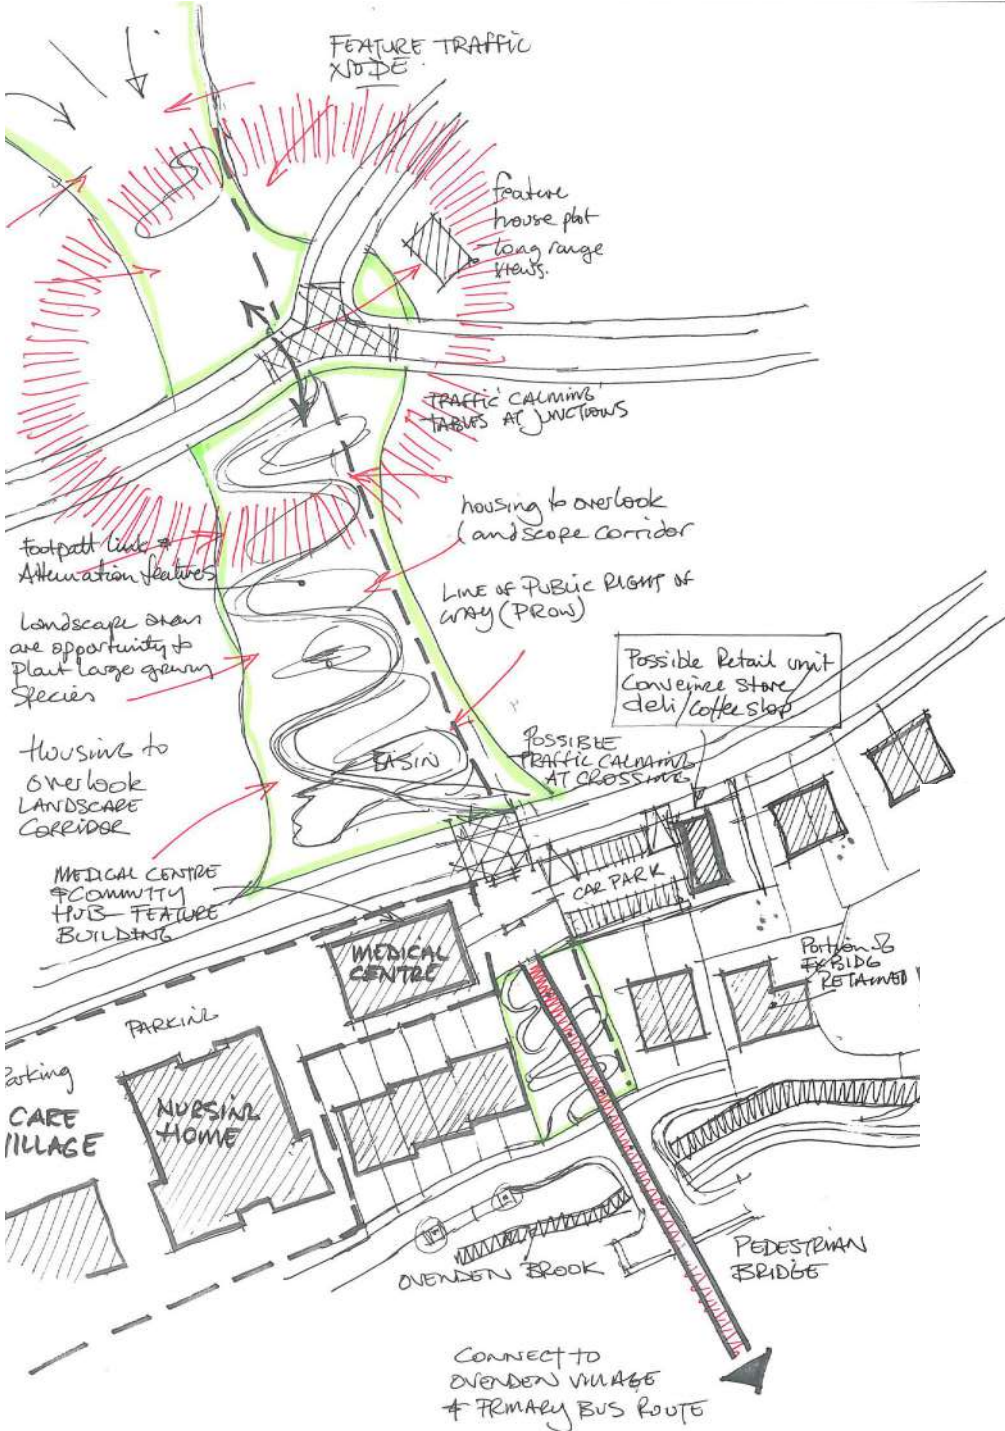 FEATURE TRAFFIC
NODE.
feature
house plot
long range
views.
TRAFFIC CALMING
TABLES AT JUNCTIONS
housing to overlook
landscape corridor
Footpath link &
Attenuation features
LINE OF PUBLIC RIGHT OF
WAY (PROW)
Landscape areas
are opportunity to
Plant large growing
Species
Possible Retail unit
Conveince store
deli/coffee shop
Housing to
overlook
LANDSCAPE
CORRIDOR
BASIN
POSSIBLE
TRAFFIC CALMING
AT CROSSING
MEDICAL CENTRE
& COMMUTY
HUB - FEATURE
BUILDING
CAR PARK
MEDICAL
CENTRE
Portion of
EX BIDG
RETAINED
PARKING
Parking
CARE
VILLAGE
NURSING
HOME
OVENDEN BROOK
PEDESTRIAN
BRIDGE
CONNECT TO
OVENDEN VILLAGE
& PRIMARY BUS ROUTE